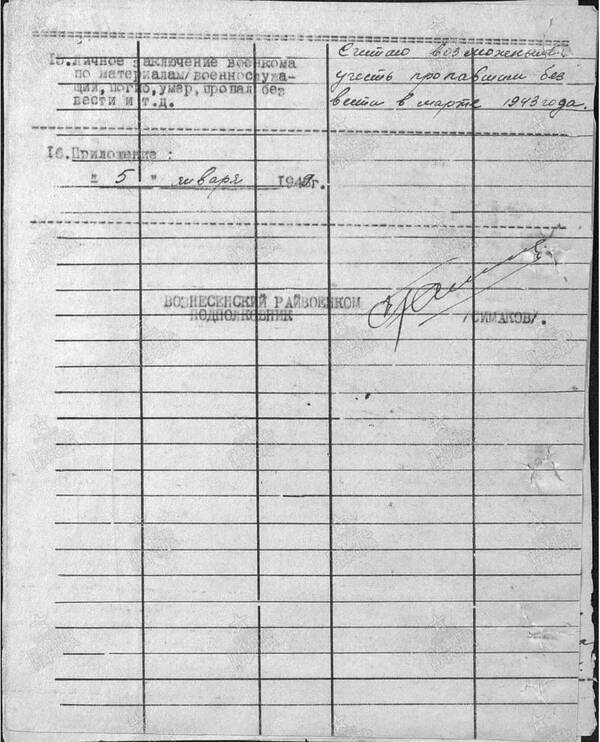 15.Личное заключение военкома
по материалам/военнослужа-
щий, погиб, умер, пропал без
вести и т.д.
Считаю возможным
учесть пропавшим без
вести в марте 1943 года.
16.Приложение :
" 5 " января 194 г.
ВОЗНЕСЕНСКИЙ РАЙВОЕНКОМ
ПОДПОЛКОВНИК
/СИМАКОВ/.